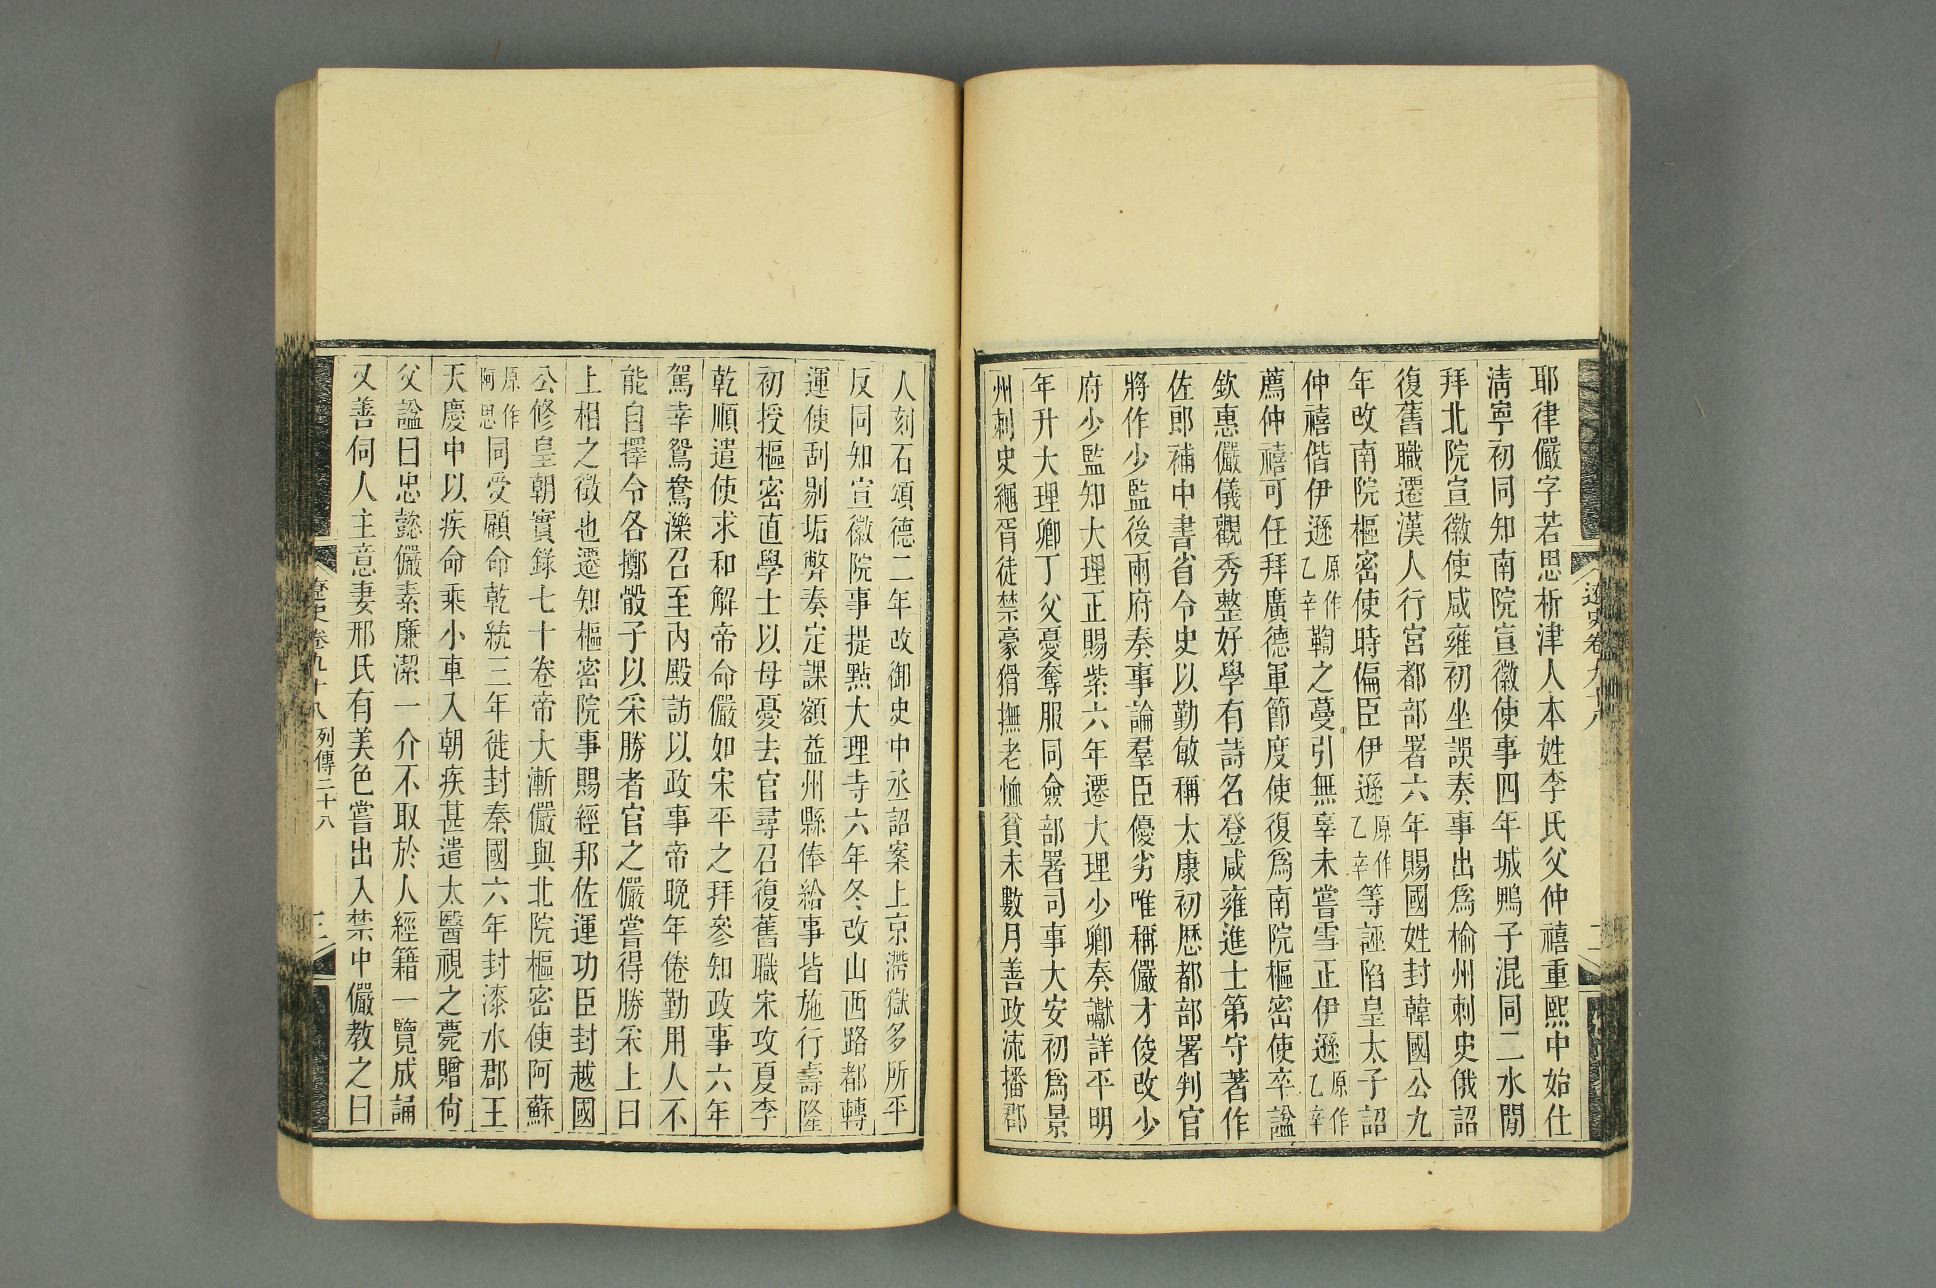 遼史卷九十八
耶律儼字若思析津人本姓李氏父仲禧重熙中始仕
淸寧初同知南院宣徽使事四年城鴨子混同二水閒
拜北院宣徽使咸雍初坐誤奏事出爲榆州刺史俄詔
復舊職遷漢人行宮都部署六年賜國姓封韓國公九
年改南院樞密使時偏臣伊遜原作乙辛等誣陷皇太子詔
仲禧偕伊遜原作乙辛鞫之蔓引無辜未嘗雪正伊遜原作乙辛
薦仲禧可任拜廣德軍節度使復爲南院樞密使卒諡
欽惠儼儀觀秀整好學有詩名登咸雍進士第守著作
佐郎補中書省令史以勤敏稱大康初歷都部署判官
將作少監後兩府奏事論羣臣優劣唯稱儼才俊改少
府少監知大理正賜紫六年遷大理少卿奏讞詳平明
年升大理卿丁父憂奪服同僉部署司事大安初爲景
州刺史繩胥徒禁豪猾撫老恤貧未數月善政流播郡
人刻石頌德二年改御史中丞詔案上京滯獄多所平
反同知宣徽院事提點大理寺六年冬改山西路都轉
運使刮剔垢弊奏定課額益州縣俸給事皆施行壽隆
初授樞密直學士以母憂去官尋召復舊職宋攻夏李
乾順遣使求和解帝命儼如宋平之拜參知政事六年
駕幸鴛鴦濼召至內殿訪以政事帝晚年倦勤用人不
能自擇令各擲骰子以采勝者官之儼嘗得勝采上曰
上相之徵也遷知樞密院事賜經邦佐運功臣封越國
公修皇朝實錄七十卷帝大漸儼與北院樞密使阿蘇
原作阿思同受顧命乾統三年徙封秦國六年封漆水郡王
天慶中以疾命乘小車入朝疾甚遣太醫視之薨贈尙
父諡曰忠懿儼素廉潔一介不取於人經籍一覽成誦
又善伺人主意妻邢氏有美色嘗出入禁中儼教之曰
遼史卷九十八 列傳二十八